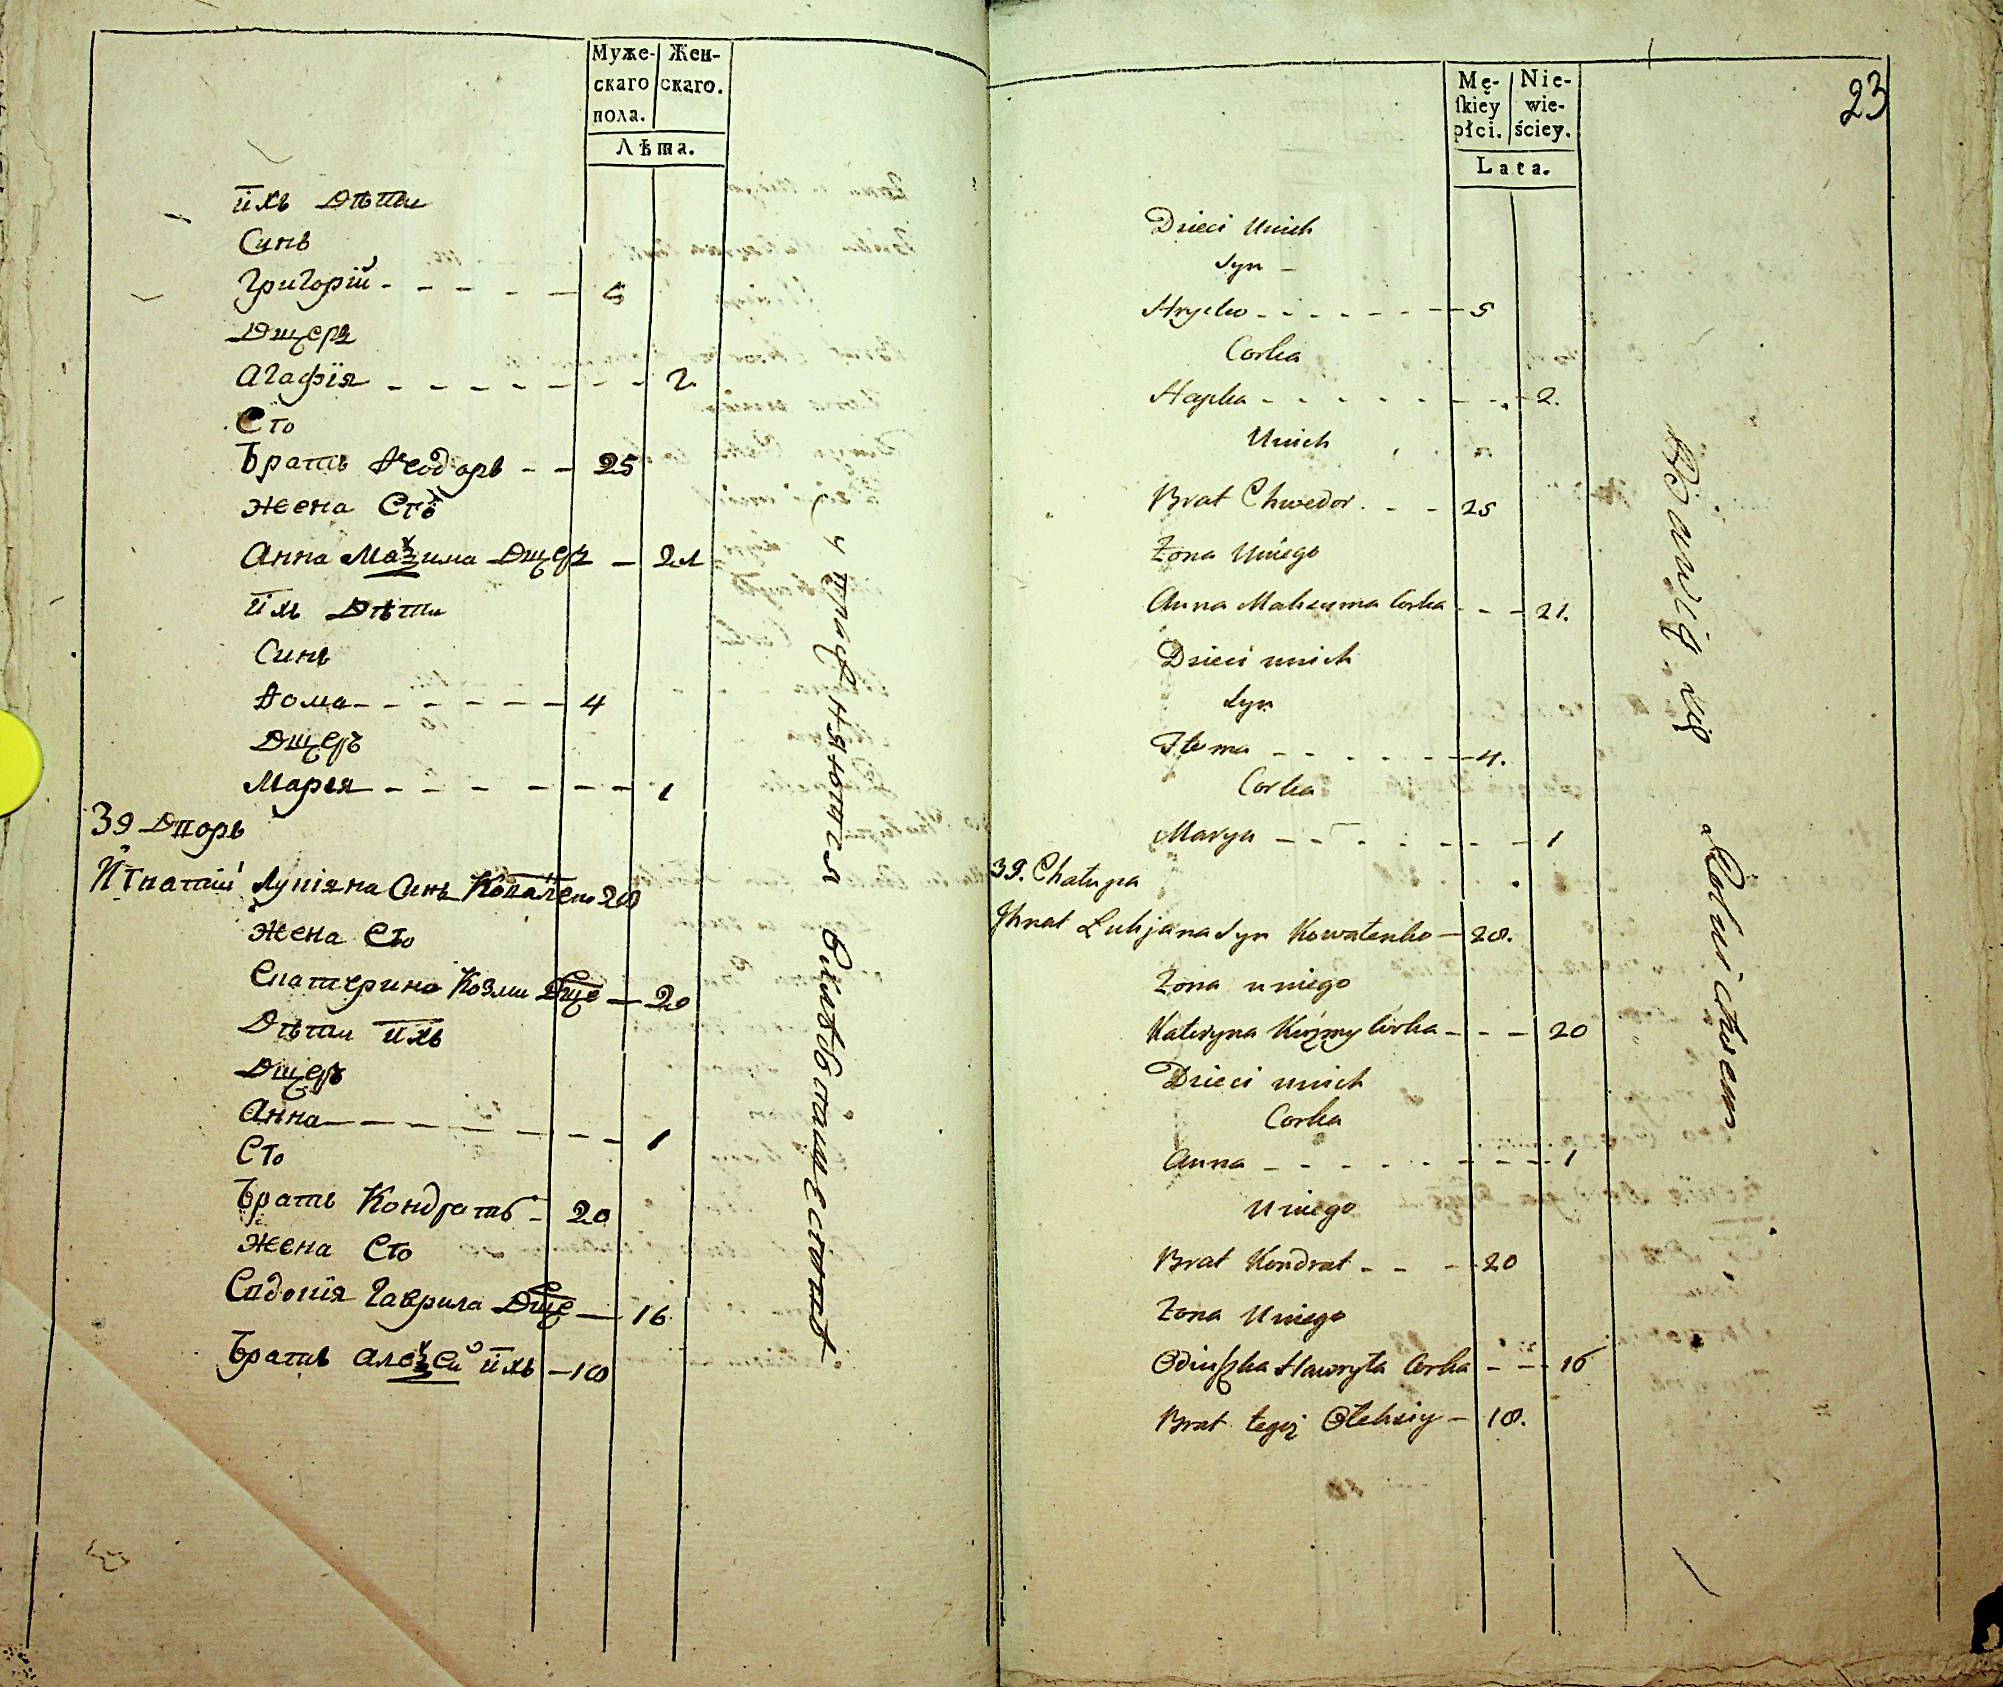 Муже-
скаго
пола.
Жен-
скаго.
Лѣта.
ихъ Дѣти
Синъ
Григорій - - - - - 5
Дщерь
Агафїя - - - - - - - 2
Его
Братъ Ѳеодоръ - - 25
Жена Егѡ
Анна Маѯима Дщерь - 21
ихъ Дѣти
Синъ
Ѳома - - - - - - 4
Дщерь
Марїя - - - - - - - 1
39 Дворъ
Игнатій Лукіяна Синъ Ковалєнко 28
Жена Его
Екатерина Козми Дще — 20
Дѣти ихъ
Дщерь
Анна - - - - - - - 1
Его
Братъ Кондратъ - 20
Жена Его
Евдокїя Гаврила Дще — 16
Братъ Алеѯей ихъ - 18
упражняются въ хлѣбопашествѣ
23
Mę-
ſkiey
płci.
Nie-
wie-
ściey.
Lata.
Dzieci Unich
Syn -
Hryćko - - - - - - - 5
Corka
Hapka - - - - - - - 2.
Unich
Brat Chwedor - - 25
Żona Uniego
Anna Maksyma Corka - - - 21.
Dzieci unich
Syn
Choma - - - - - - 4.
Corka
Marya - - - - - - - 1
39. Chałupa
Ihnat Łukjana Syn Kowalenko - 28.
Żona uniego
Kateryna Kuźmy Corka - - - 20
Dzieci unich
Corka
Anna - - - - - - - - 1
Uniego
Brat Kondrat - - - 20
Żona Uniego
Odiuſzka Hawryła Corka - - - 16
Brat tegoż Ołeksiy - 18.
Bawią się Rolnictwem